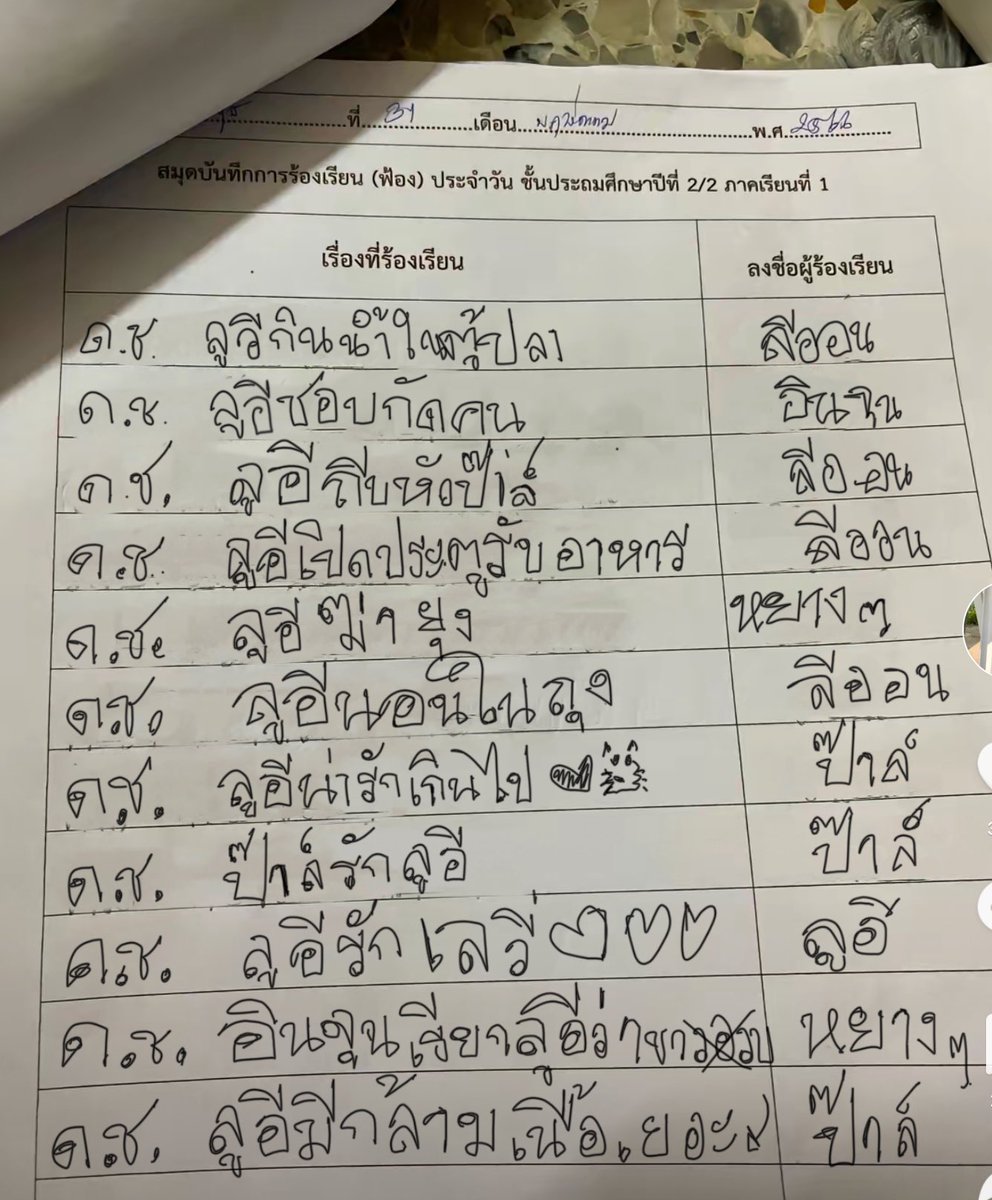 ที่ 31 เดือน พฤษภาคม พ.ศ. 2566
สมุดบันทึกการร้องเรียน (ฟ้อง) ประจำวัน ชั้นประถมศึกษาปีที่ 2/2 ภาคเรียนที่ 1
เรื่องที่ร้องเรียน ลงชื่อผู้ร้องเรียน
ด.ช. ลูวีกินน้ำในตู้ปลา ลีออน
ด.ช. ลูอีชอบกัดคน อินจุน
ด.ช. ลูอีถีบหัวป๊าล์ ลีออน
ด.ช. ลูอีเปิดประตูรับอาหาร ลีออน
ด.ช. ลูอีฆ่ายุง หยางๆ
ด.ช. ลูอีนอนในถุง ลีออน
ด.ช. ลูอีน่ารักเกินไป ป๊าล์
ด.ช. ป๊าล์รักลูอี ป๊าล์
ด.ช. ลูอีรักเลวี่ ลูอี
ด.ช. อินจุนเรียกลูอีว่า หยางๆ
ด.ช. ลูอีมีกล้ามเนื้อเยอะ ป๊าล์